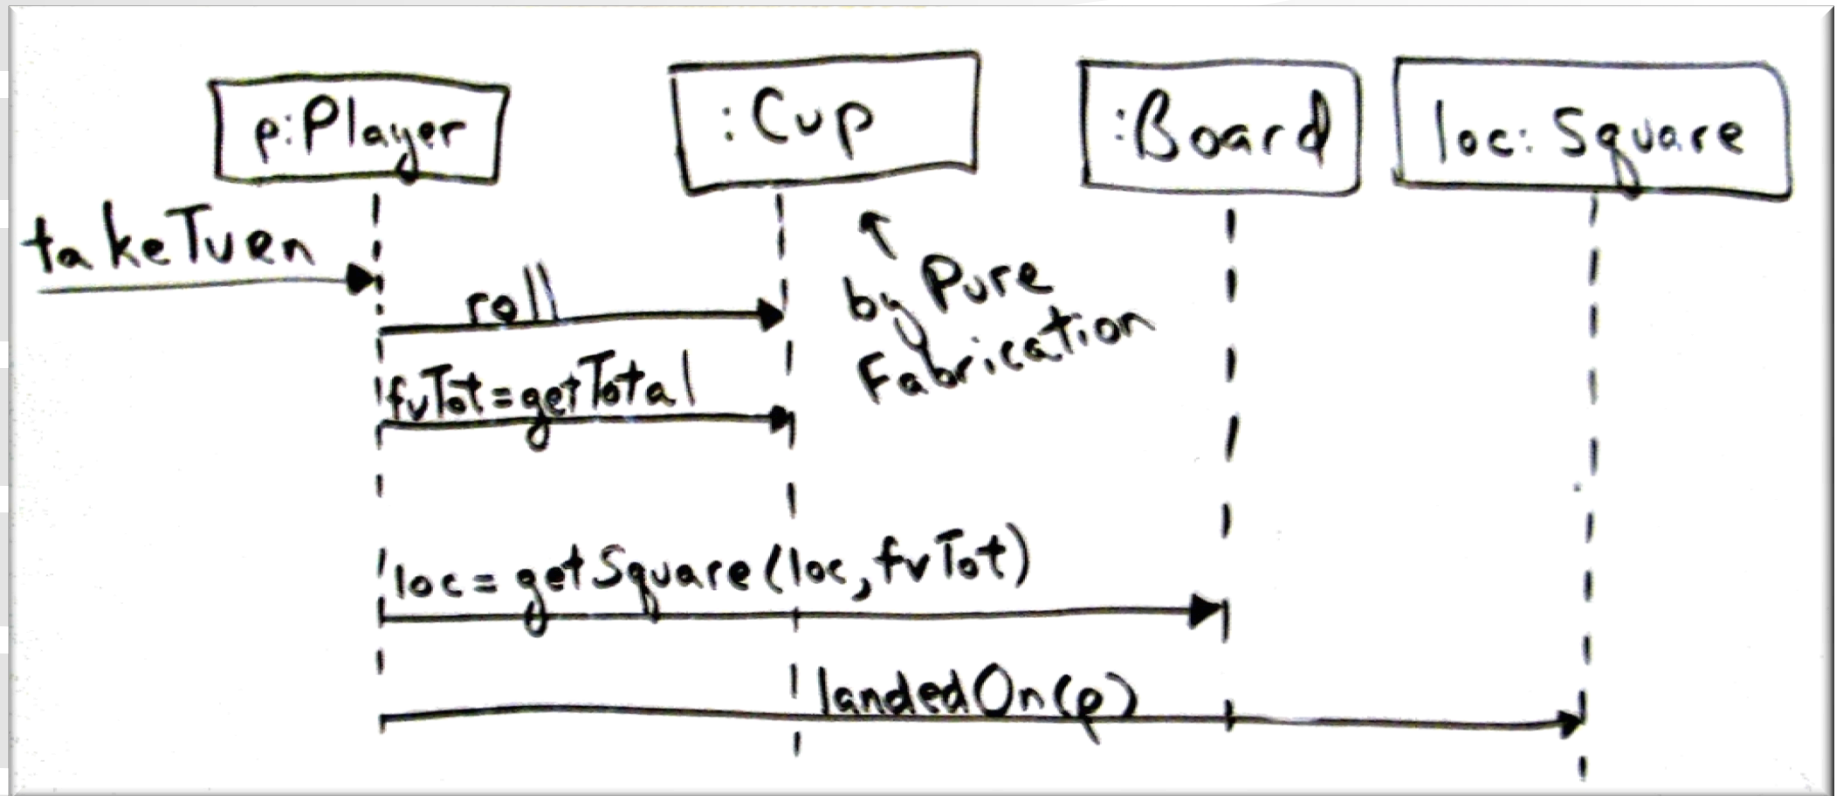 p:Player
:Cup
:Board
loc: Square
takeTurn
roll
by Pure
Fabrication
fvTot=getTotal
loc= getSquare(loc, fvTot)
landedOn(p)